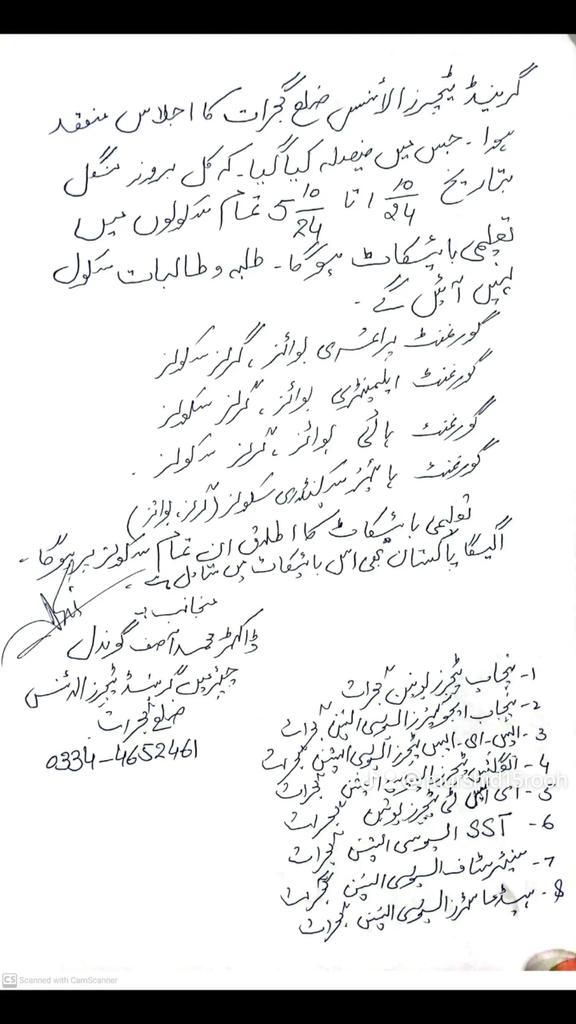 گرینڈ ٹیچرز الائنس ضلع گجرات کا اجلاس منعقد
ہوا۔ جس میں فیصلہ کیا گیا۔ کہ کل بروز منگل
بتاریخ 1 10/24 تا 5 10/24 تمام سکولوں میں
تعلیمی بائیکاٹ ہوگا۔ طلبہ و طالبات سکول
نہیں آئیں گے۔
گورنمنٹ پرائمری بوائز، گرلز سکولز
گورنمنٹ ایلیمنٹری بوائز، گرلز سکولز
گورنمنٹ ہائی بوائز، گرلز سکولز۔
گورنمنٹ ہائیر سیکنڈری سکولز (گرلز، بوائز)
تعلیمی بائیکاٹ کا اطلاق ان تمام سکولز پر ہوگا۔
اگیگا پاکستان بھی اس بائیکاٹ میں شامل ہے۔
منجانب:۔
ڈاکٹر محمد آصف گوندل
چیئرمین گرینڈ ٹیچرز الائنس
ضلع گجرات
0334-4652461
1- پنجاب ٹیچرز یونین گجرات
2- پنجاب ایجوکیٹرز ایسوسی ایشن گجرات
3- ایس۔ای۔ایس ٹیچرز ایسوسی ایشن گجرات
4- ٹیچرز ایسوسی ایشن گجرات
5- ای ایس ٹی ٹیچرز یونین گجرات
6- SST ایسوسی ایشن گجرات
7- سینئر سٹاف ایسوسی ایشن گجرات
8- ہیڈ ماسٹرز ایسوسی ایشن گجرات
CS Scanned with CamScanner